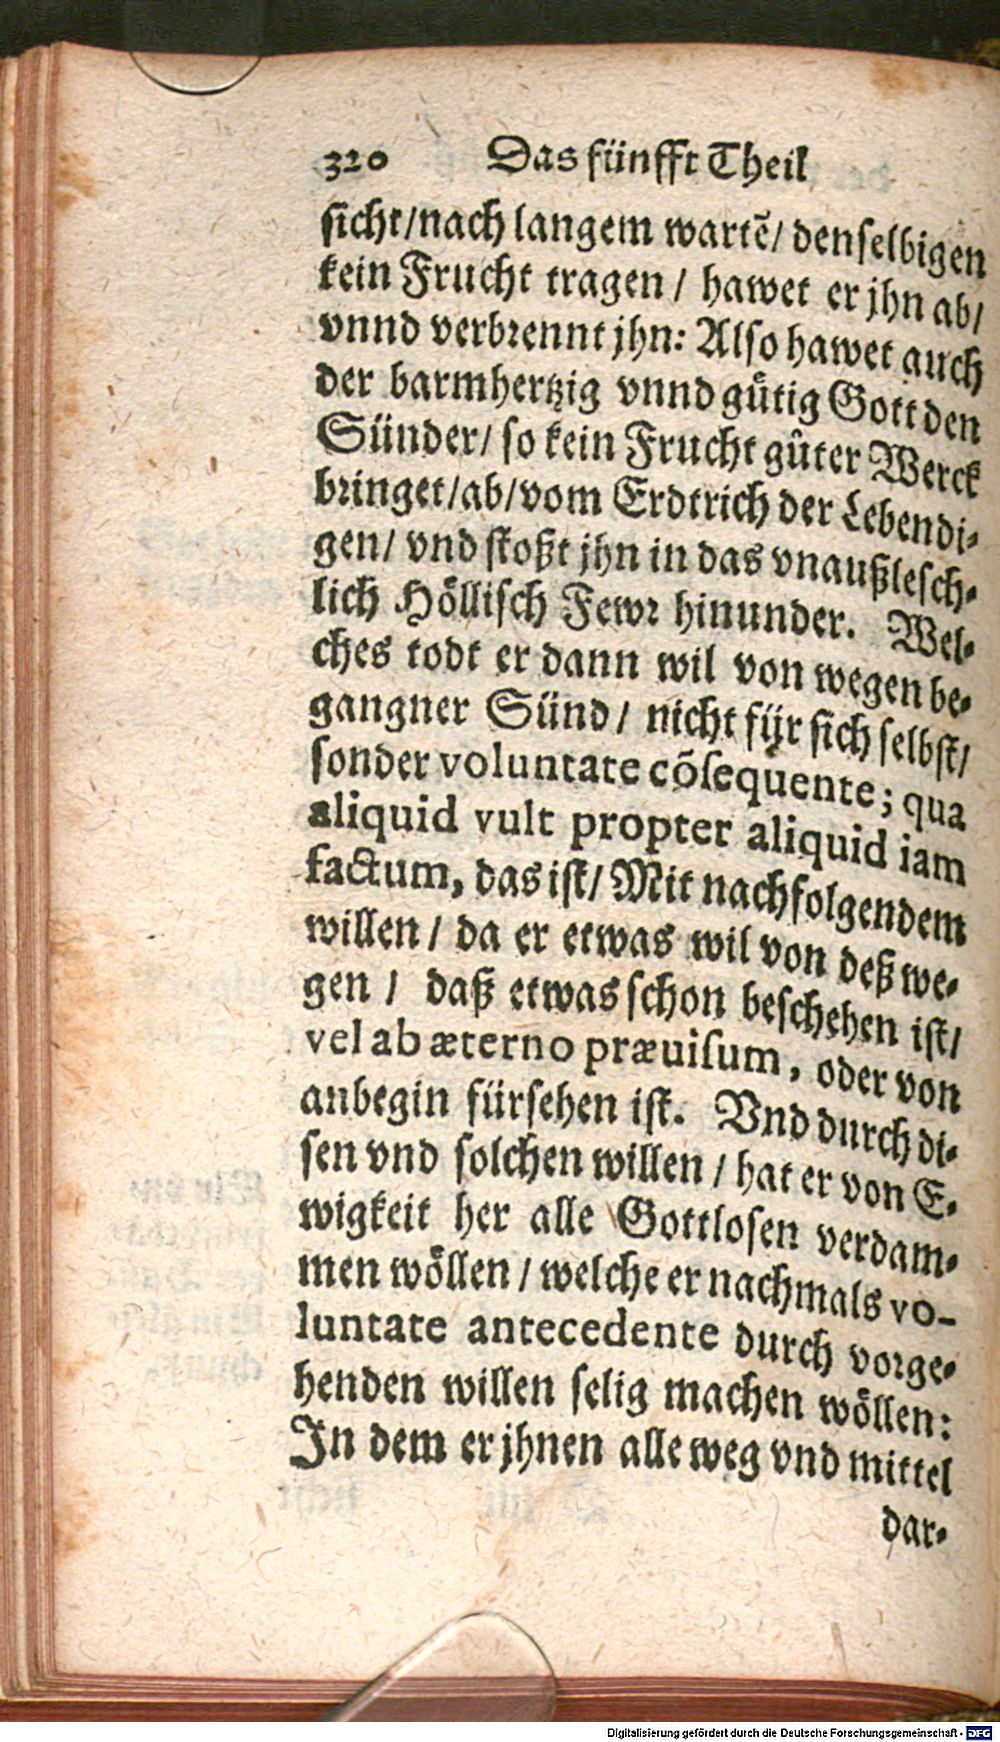 320 Das fünfft Theil
sicht/nach langem wartẽ/ denselbigen
kein Frucht tragen / hawet er jhn ab/
vnnd verbrennt jhn: Also hawet auch
der barmhertzig vnnd gütig Gott den
Sünder/ so kein Frucht gůter Werck
bringet/ab/vom Erdtrich der Lebendi-
gen/ vnd stoßt jhn in das vnaußlesch-
lich Höllisch Fewr hinunder. Wel-
ches todt er dann wil von wegen be-
gangner Sünd / nicht für sich selbst/
sonder voluntate cõsequente; qua
aliquid vult propter aliquid iam
factum, das ist/ Mit nachfolgendem
willen / da er etwas wil von deß we-
gen / daß etwas schon beschehen ist/
vel ab æterno præuisum, oder von
anbegin fürsehen ist. Vnd durch di-
sen vnd solchen willen / hat er von E-
wigkeit her alle Gottlosen verdam-
men wöllen / welche er nachmals vo-
luntate antecedente durch vorge-
henden willen selig machen wöllen:
In dem er jhnen alle weg vnd mittel
dar-
Digitalisierung gefördert durch die Deutsche Forschungsgemeinschaft - DFG